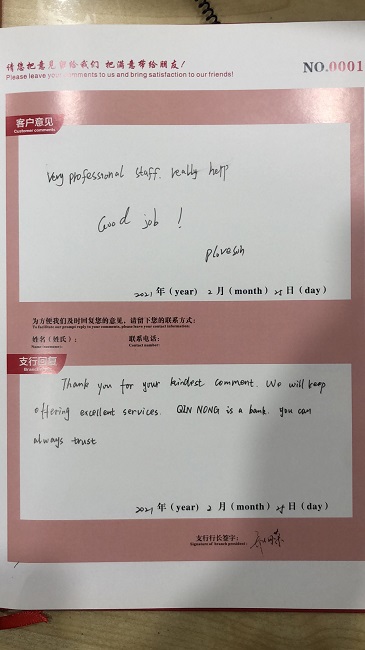 请您把意见带给我们 把满意带给朋友!
Please leave your comments to us and bring satisfaction to our friends!
NO.0001
客户意见
Customer comments
Very professional staff. really help
Good job !
2021 年(year) 2 月(month) 25 日(day)
为方便我们及时回复您的意见、请留下您的联系方式:
To facilitate our prompt reply to your comments, please leave your contact information:
姓名(姓氏): 联系电话:
Name(surname): Contact number:
支行回复
Thank you for your kindest comment. We will keep
offering excellent services. QIN NONG is a bank. you can
always trust
2021 年(year) 2 月(month) 25 日(day)
支行行长签字:
Signature of branch president: